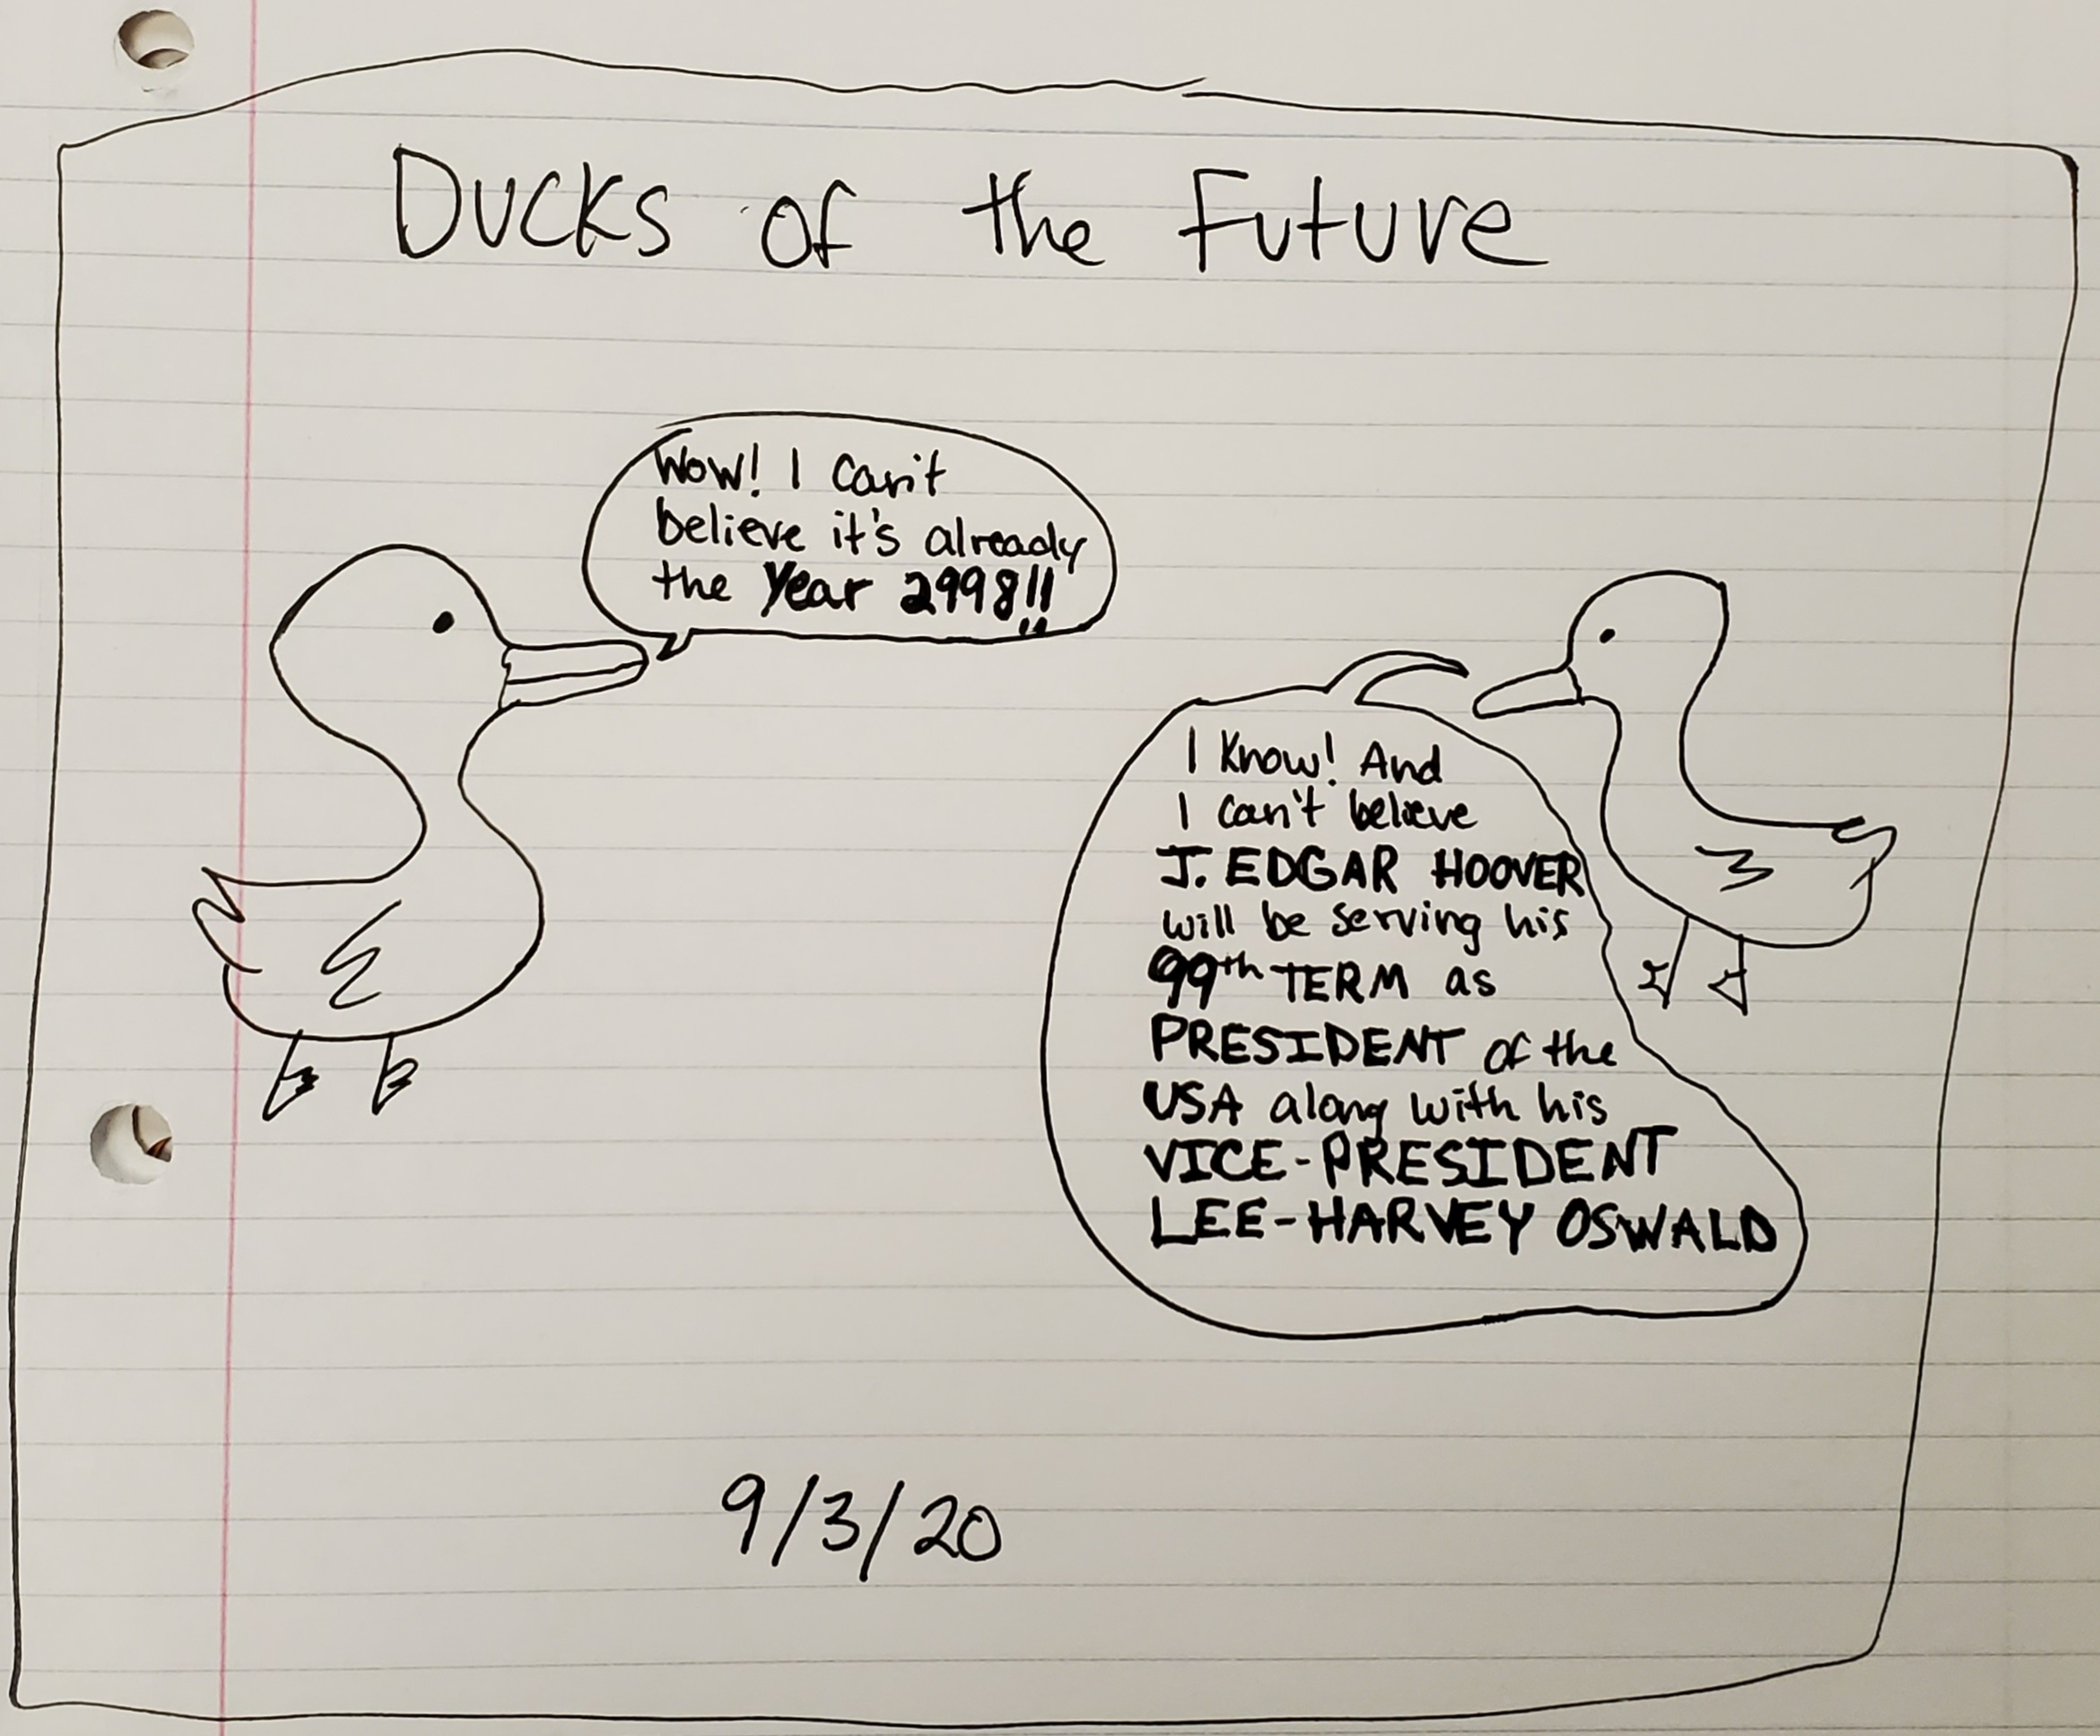 Ducks of the Future
Wow! I can't
believe it's already
the Year 2998!!
I know! And
I can't believe
J. EDGAR HOOVER
will be serving his
99th TERM as
PRESIDENT of the
USA along with his
VICE-PRESIDENT
LEE-HARVEY OSWALD
9/3/20